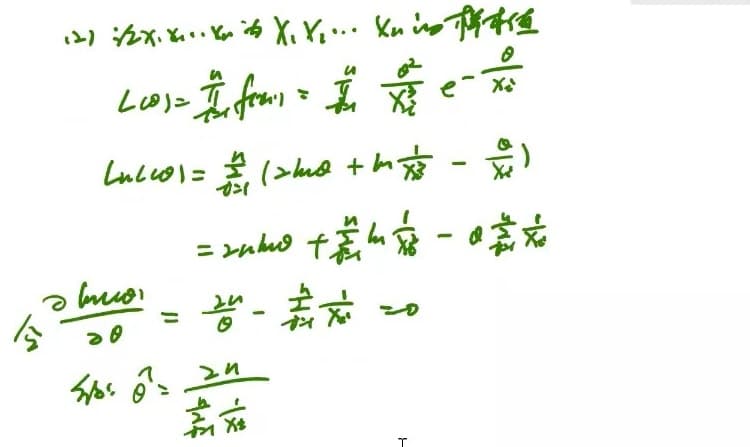 (2) 记x₁ x₂ ... xₙ 为 X₁ X₂ ... Xₙ 的样本值
L(θ) = ∏ᵢ₌₁ⁿ f(xᵢ) = ∏ᵢ₌₁ⁿ θ²/xᵢ³ e^(-θ/xᵢ)
lnL(θ) = Σᵢ₌₁ⁿ (2lnθ + ln 1/xᵢ³ - θ/xᵢ)
= 2nlnθ + Σᵢ₌₁ⁿ ln 1/xᵢ³ - θ Σᵢ₌₁ⁿ 1/xᵢ
令 ∂lnL(θ)/∂θ = 2n/θ - Σᵢ₌₁ⁿ 1/xᵢ = 0
解: θ̂ = 2n / Σᵢ₌₁ⁿ 1/xᵢ